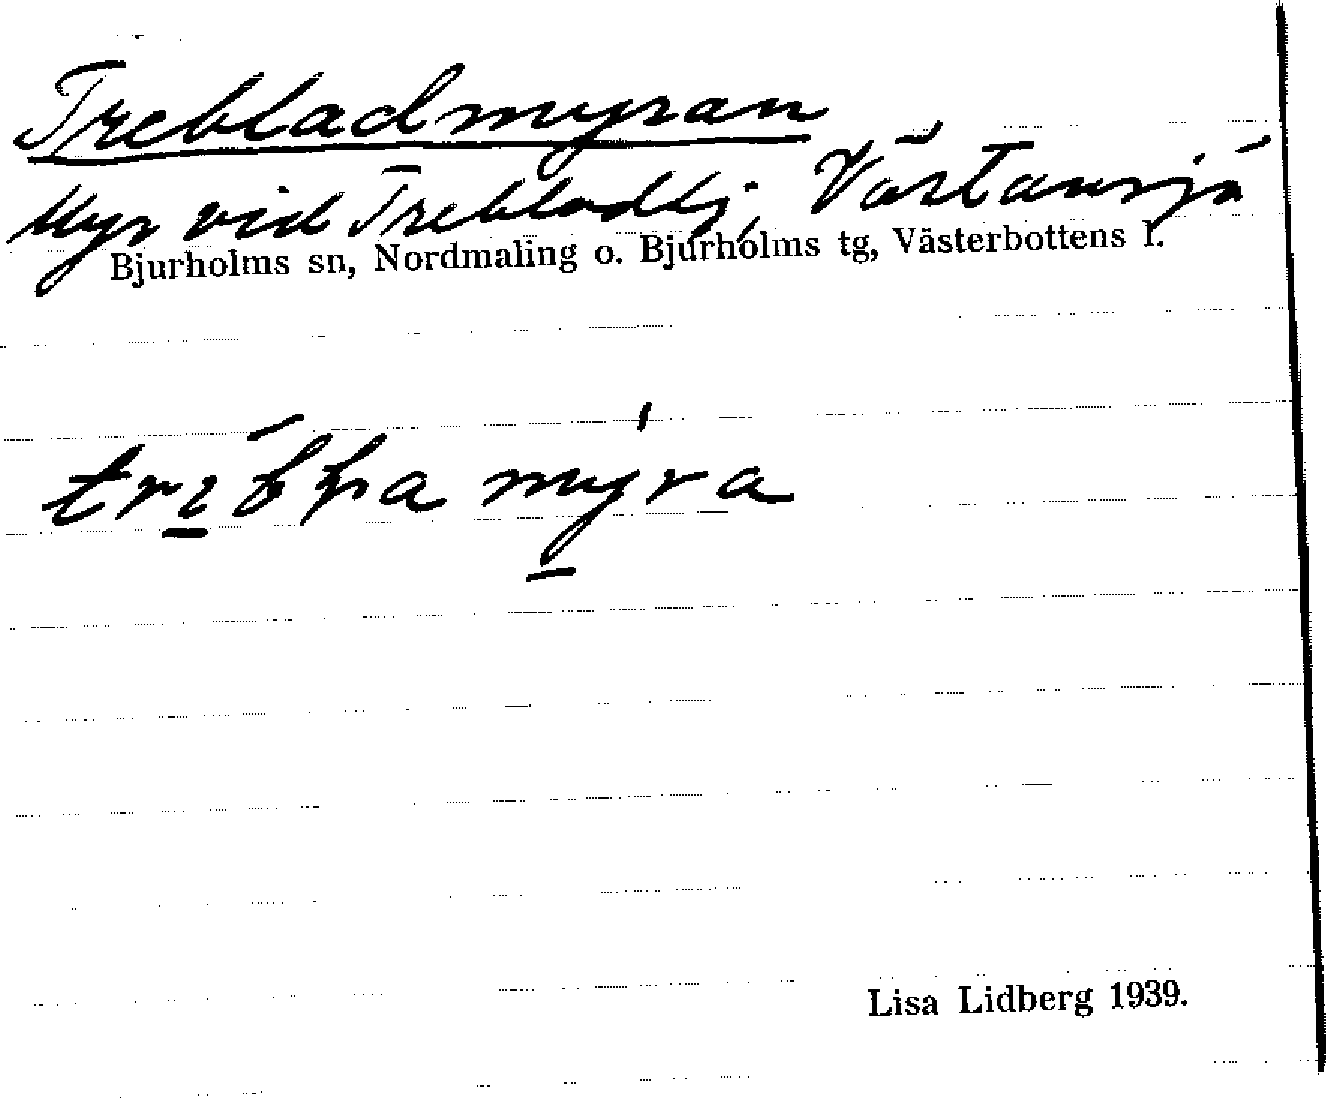 Trebladmyran
Myr vid Trebladtj, Västansjö
Bjurholms sn, Nordmaling o. Bjurholms tg, Västerbottens l.
myra
Lisa Lidberg 1939.